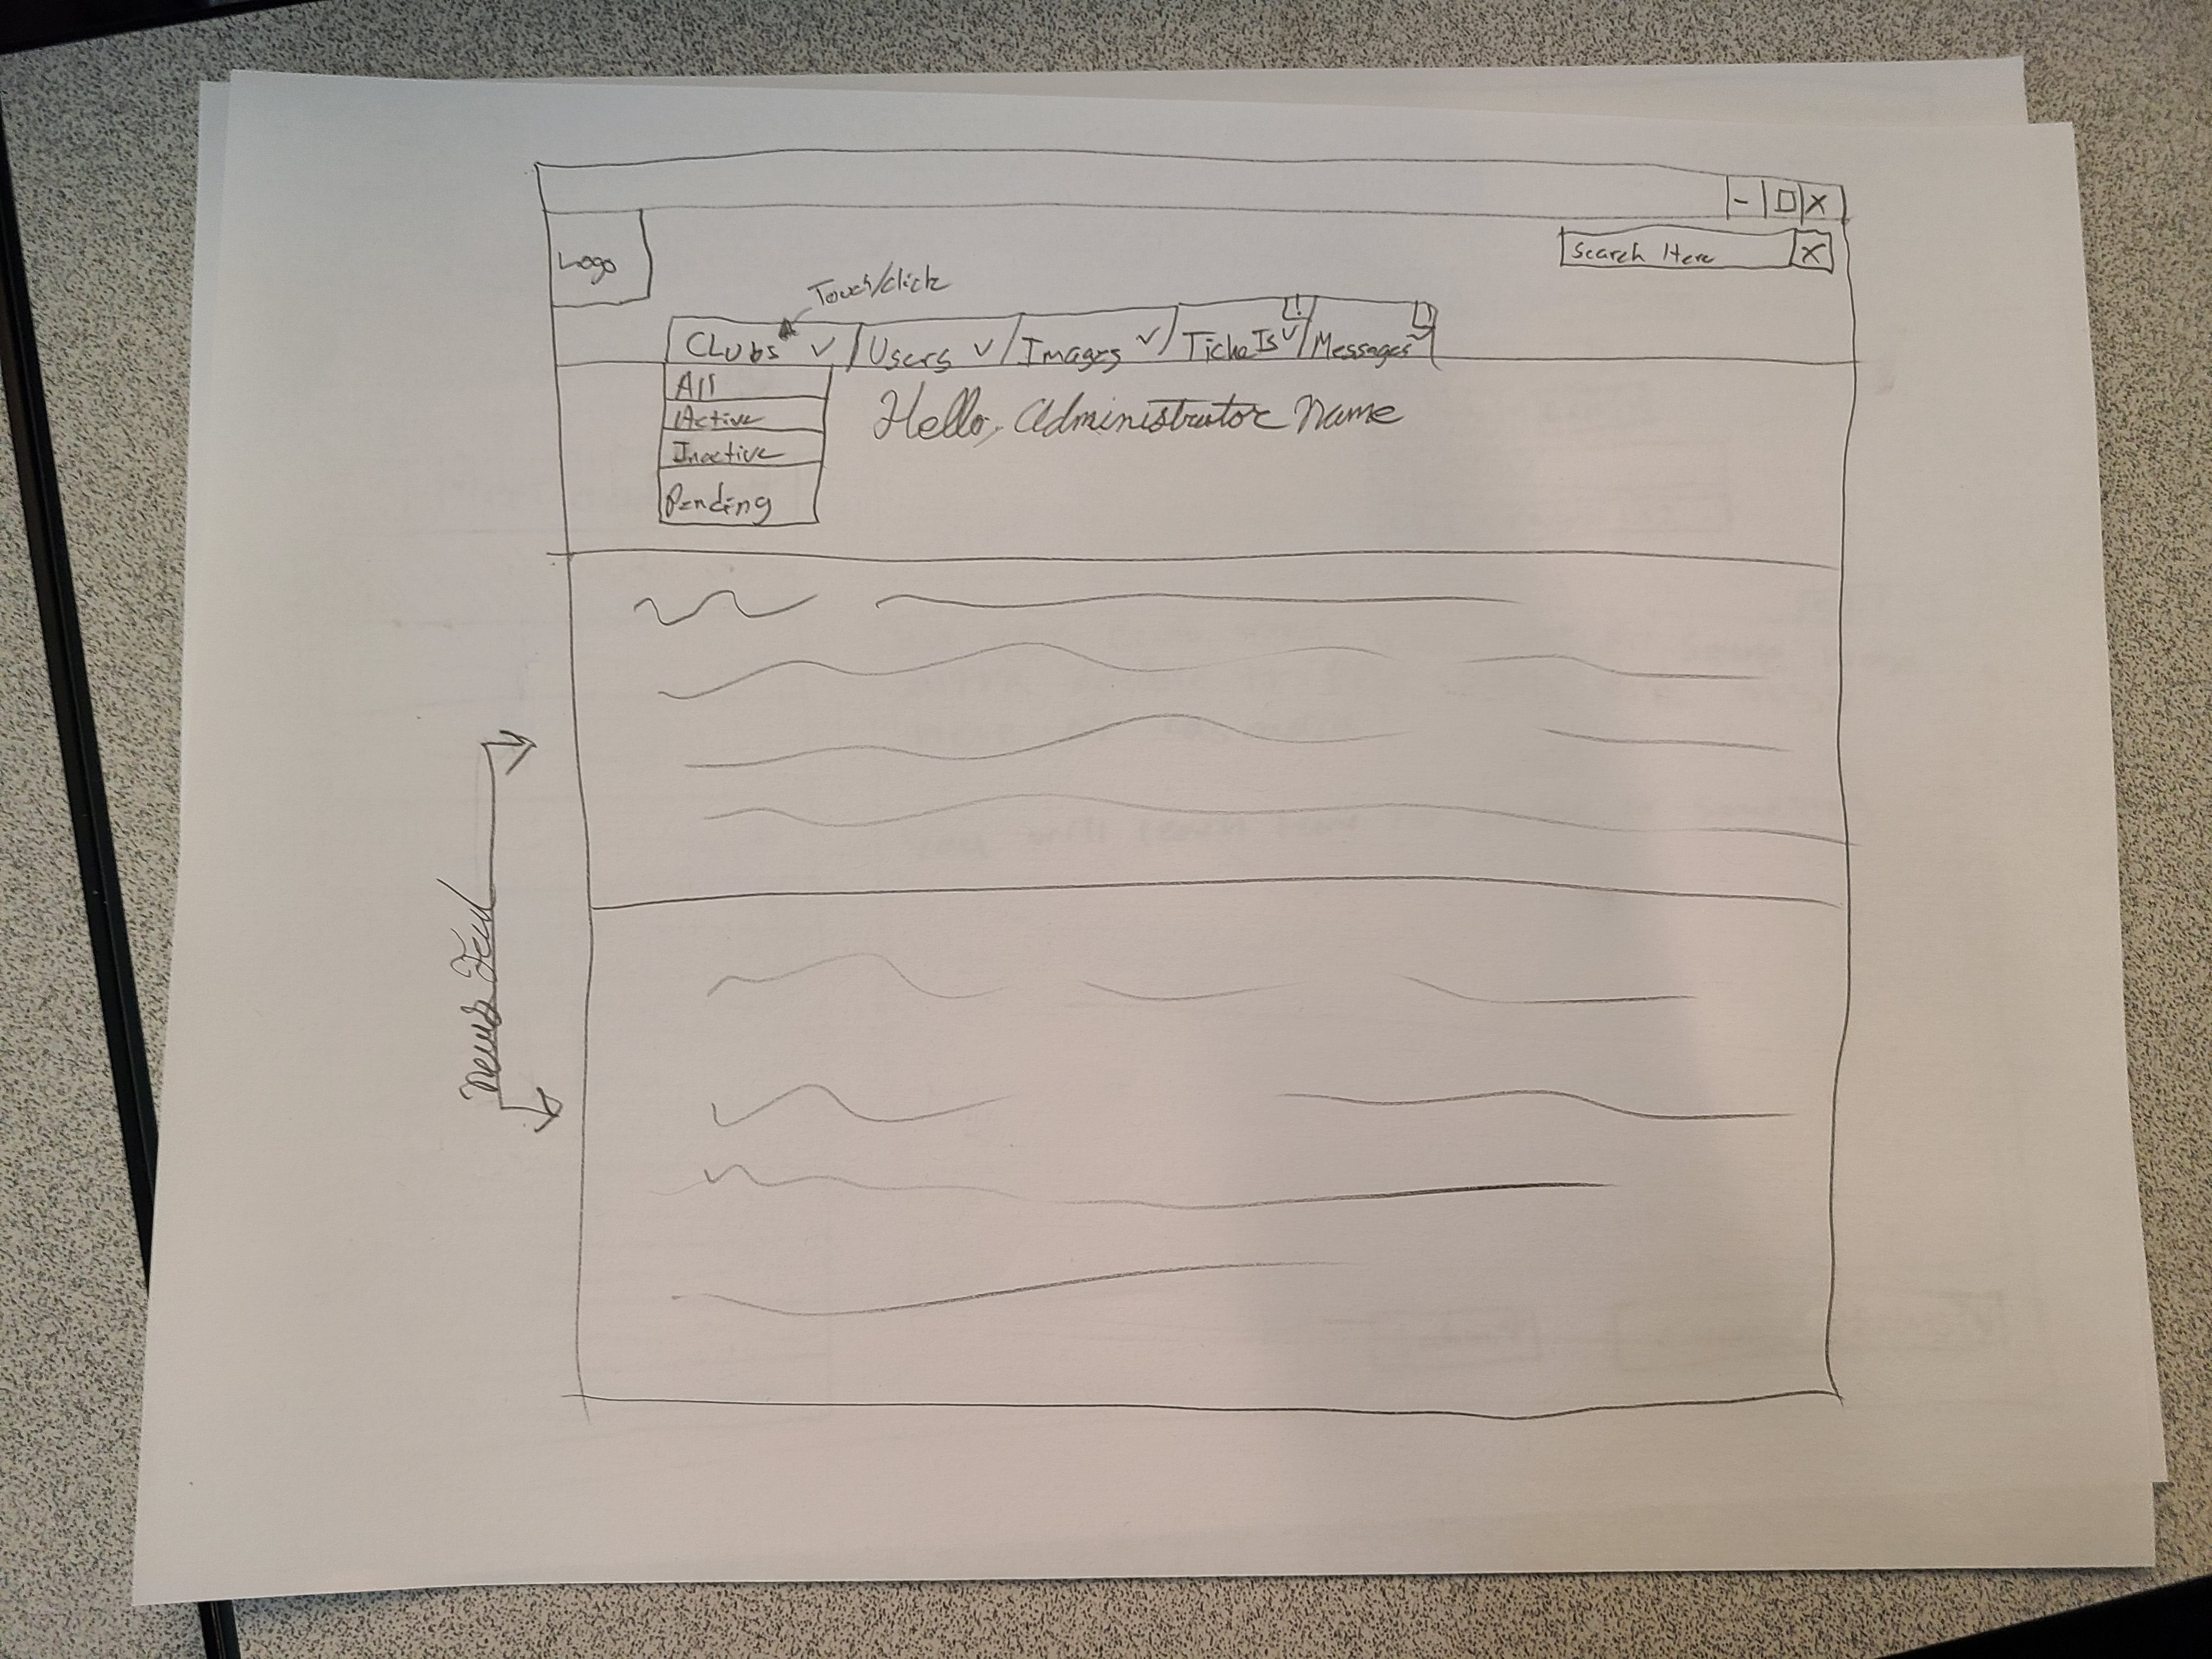 - □ X
Logo
Search Here X
Touch/click
Clubs ✓ / Users ✓ / Images ✓ / Tickets ✓ / Messages ✓
All
Active
Inactive
Pending
Hello, Administrator Name
News Feed